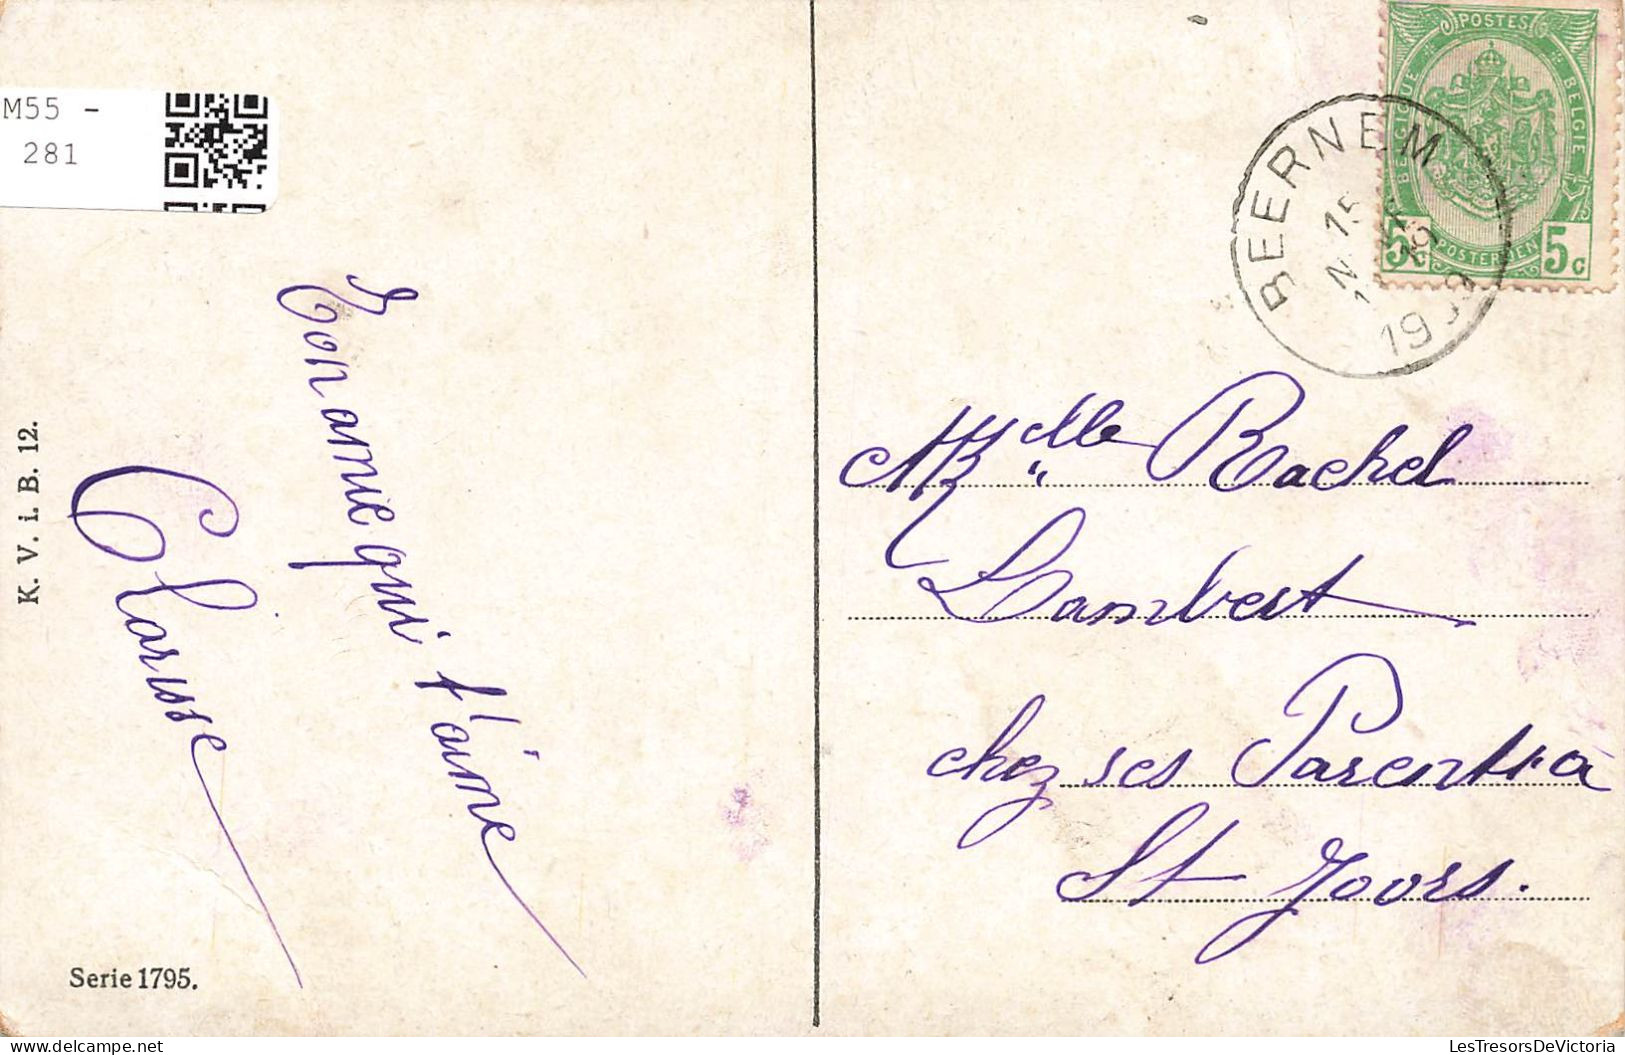 M55 -
281
K. V. i. B. 12.
Ton amie qui t'aime
Clarisse
Serie 1795.
POSTES
BELGIQUE
BELGIE
POSTERIJEN
5c
5c
BEERNEM
15
N
19
Melle Rachel
Lambert
chez ses Parents à
St Joors.
LesTresorsDeVictoria